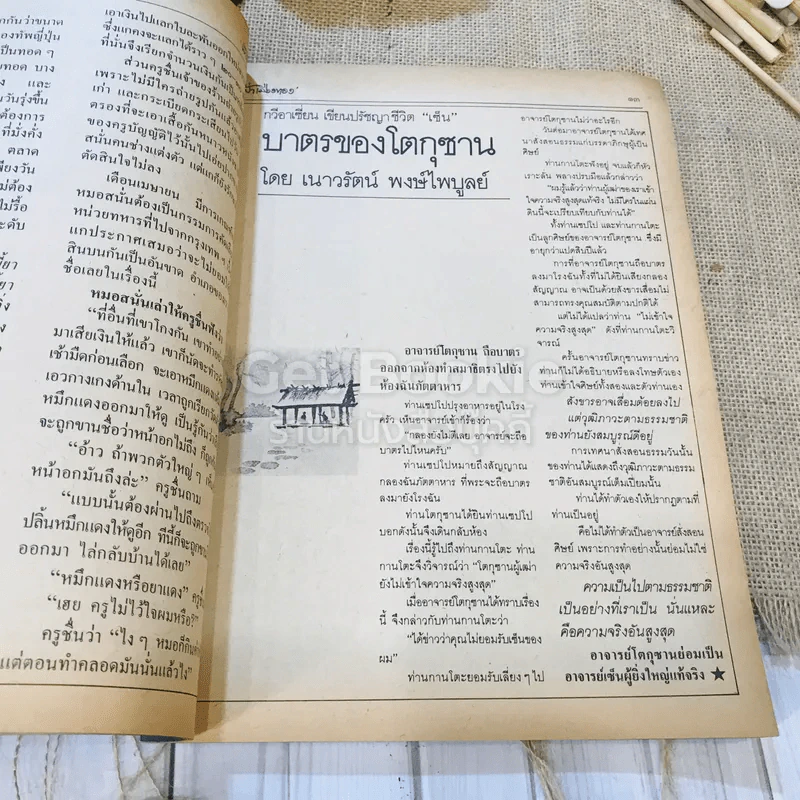 กันว่าขนาด
องทัพญี่ปุ่น
ป็นทอด ๆ
ทอด บาง
และ
วันรุ่งขึ้น
ต้องการ
ที่มั่งคั่ง
ตลาด
พียงวัน
ม่ต้อง
ไม่รื้อ
ะดับ
เอาเงินไปแลกใบละพันออกใหม่
ซึ่งแกคงจะแลกได้ราว ๆ
ที่นั่นจึงเรียกจำนวนเงินกันเป็น
ส่วนครูชื่นเจ้าของร้าน
เพราะไม่มีใครถ่ายรูปกันแล้ว
เก่า และกระเบียดกระเสียร
ตรองที่จะเอาเสื้อกันหนาว
ของครูบัญญัติไว้นั้นไป
สนั่นคนช่างแต่งตัว แต่แกก็ยัง
ตัดสินใจไม่ลง
เดือนเมษายน มีการเกณฑ์
หมอสนั่นต้องเป็นกรรมการคัด
หน่วยทหารที่ไปจากกรุงเทพ ๆ
แกประกาศเสมอว่าจะไม่ยอม
สินบนกันเป็นอันขาด อำเภอของ
ชื่อเลยในเรื่องนี้
หมอสนั่นเล่าให้ครูชื่นฟัง
“ที่อื่นที่เขาโกงกัน เขาทำ
มาเสียเงินให้แล้ว เขาก็นัดจะทำ
เช้ามืดก่อนเลือก จะเอาหมึกแดง
เอวกางเกงด้านใน เวลาถูกเรียก
หมึกแดงออกมาให้ดู เป็นรู้กัน
จะถูกขานชื่อว่าหน้าอกไม่ถึง
“อ้าว ถ้าพวกตัวใหญ่ ๆ
หน้าอกมันถึงล่ะ” ครูชื่นถาม
“แบบนั้นต้องผ่านไปถึงตรวจ
ปลิ้นหมึกแดงให้ดูอีก ทีนี้ก็จะถูก
ออกมา ไล่กลับบ้านได้เลย”
“หมึกแดงหรือยาแดง” ครู
“เฮย ครูไม่ไว้ใจผมหรือ?”
ครูชื่นว่า “ไง ๆ หมอก็กิน
แต่ตอนทำคลอดมันนั่นแล้วไง”
๑๓
กวีอาเซียน เขียนปรัชญาชีวิต “เซ็น”
บาตรของโตกุซาน
โดย เนาวรัตน์ พงษ์ไพบูลย์
อาจารย์โตกุซาน ถือบาตร
ออกจากห้องทำสมาธิตรงไปยัง
ห้องฉันภัตตาหาร
ท่านเซปโปปรุงอาหารอยู่ในโรง
ครัว เห็นอาจารย์เข้าก็ร้องว่า
“กลองยังไม่ตีเลย อาจารย์จะถือ
บาตรไปไหนครับ”
ท่านเซปโปหมายถึงสัญญาณ
กลองฉันภัตตาหาร ที่พระจะถือบาตร
ลงมายังโรงฉัน
ท่านโตกุซานได้ยินท่านเซปโป
บอกดังนั้นจึงเดินกลับห้อง
เรื่องนี้รู้ไปถึงท่านกานโตะ ท่าน
กานโตะจึงวิจารณ์ว่า “โตกุซานผู้เฒ่า
ยังไม่เข้าใจความจริงสูงสุด”
เมื่ออาจารย์โตกุซานได้ทราบเรื่อง
นี้ จึงกล่าวกับท่านกานโตะว่า
“ได้ข่าวว่าคุณไม่ยอมรับเซ็นของ
ผม”
ท่านกานโตะยอมรับเลี่ยง ๆ ไป
อาจารย์โตกุซานไม่ว่าอะไรอีก
วันต่อมาอาจารย์โตกุซานได้เทศ
นาสั่งสอนธรรมแก่บรรดาภิกษุผู้เป็น
ศิษย์
ท่านกานโตะฟังอยู่ จบแล้วก็หัว
เราะลั่น พลางปรบมือแล้วกล่าวว่า
“ผมรู้แล้วว่าท่านผู้เฒ่าของเราเข้า
ใจความจริงสูงสุดแท้จริง ไม่มีใครในแผ่น
ดินนี้จะเปรียบเทียบกับท่านได้”
ทั้งท่านเซปโป และท่านกานโตะ
เป็นลูกศิษย์ของอาจารย์โตกุซาน ซึ่งมี
อายุกว่าแปดสิบปีแล้ว
การที่อาจารย์โตกุซานถือบาตร
ลงมาโรงฉันทั้งที่ไม่ได้ยินเสียงกลอง
สัญญาณ อาจเป็นด้วยสังขารเสื่อมไม่
สามารถทรงคุณสมบัติตามปกติได้
แต่ไม่ได้แปลว่าท่าน “ไม่เข้าใจ
ความจริงสูงสุด” ดังที่ท่านกานโตะวิ
จารณ์
ครั้นอาจารย์โตกุซานทราบข่าว
ท่านก็ไม่ได้อธิบายหรือลงโทษตัวเอง
ท่านเข้าใจศิษย์ทั้งสองและตัวท่านเอง
สังขารอาจเสื่อมถอยลงไป
แต่วุฒิภาวะตามธรรมชาติ
ของท่านยังสมบูรณ์ดีอยู่
การเทศนาสั่งสอนธรรมวันนั้น
ของท่านได้แสดงถึงวุฒิภาวะตามธรรม
ชาติอันสมบูรณ์เต็มเปี่ยมนั้น
ท่านได้ทำตัวเองให้ปรากฏตามที่
ท่านเป็นอยู่
คือไม่ได้ทำตัวเป็นอาจารย์สั่งสอน
ศิษย์ เพราะการทำอย่างนั้นย่อมไม่ใช่
ความจริงอันสูงสุด
ความเป็นไปตามธรรมชาติ
เป็นอย่างที่เราเป็น นั่นแหละ
คือความจริงอันสูงสุด
อาจารย์โตกุซานย่อมเป็น
อาจารย์เซ็นผู้ยิ่งใหญ่แท้จริง ★